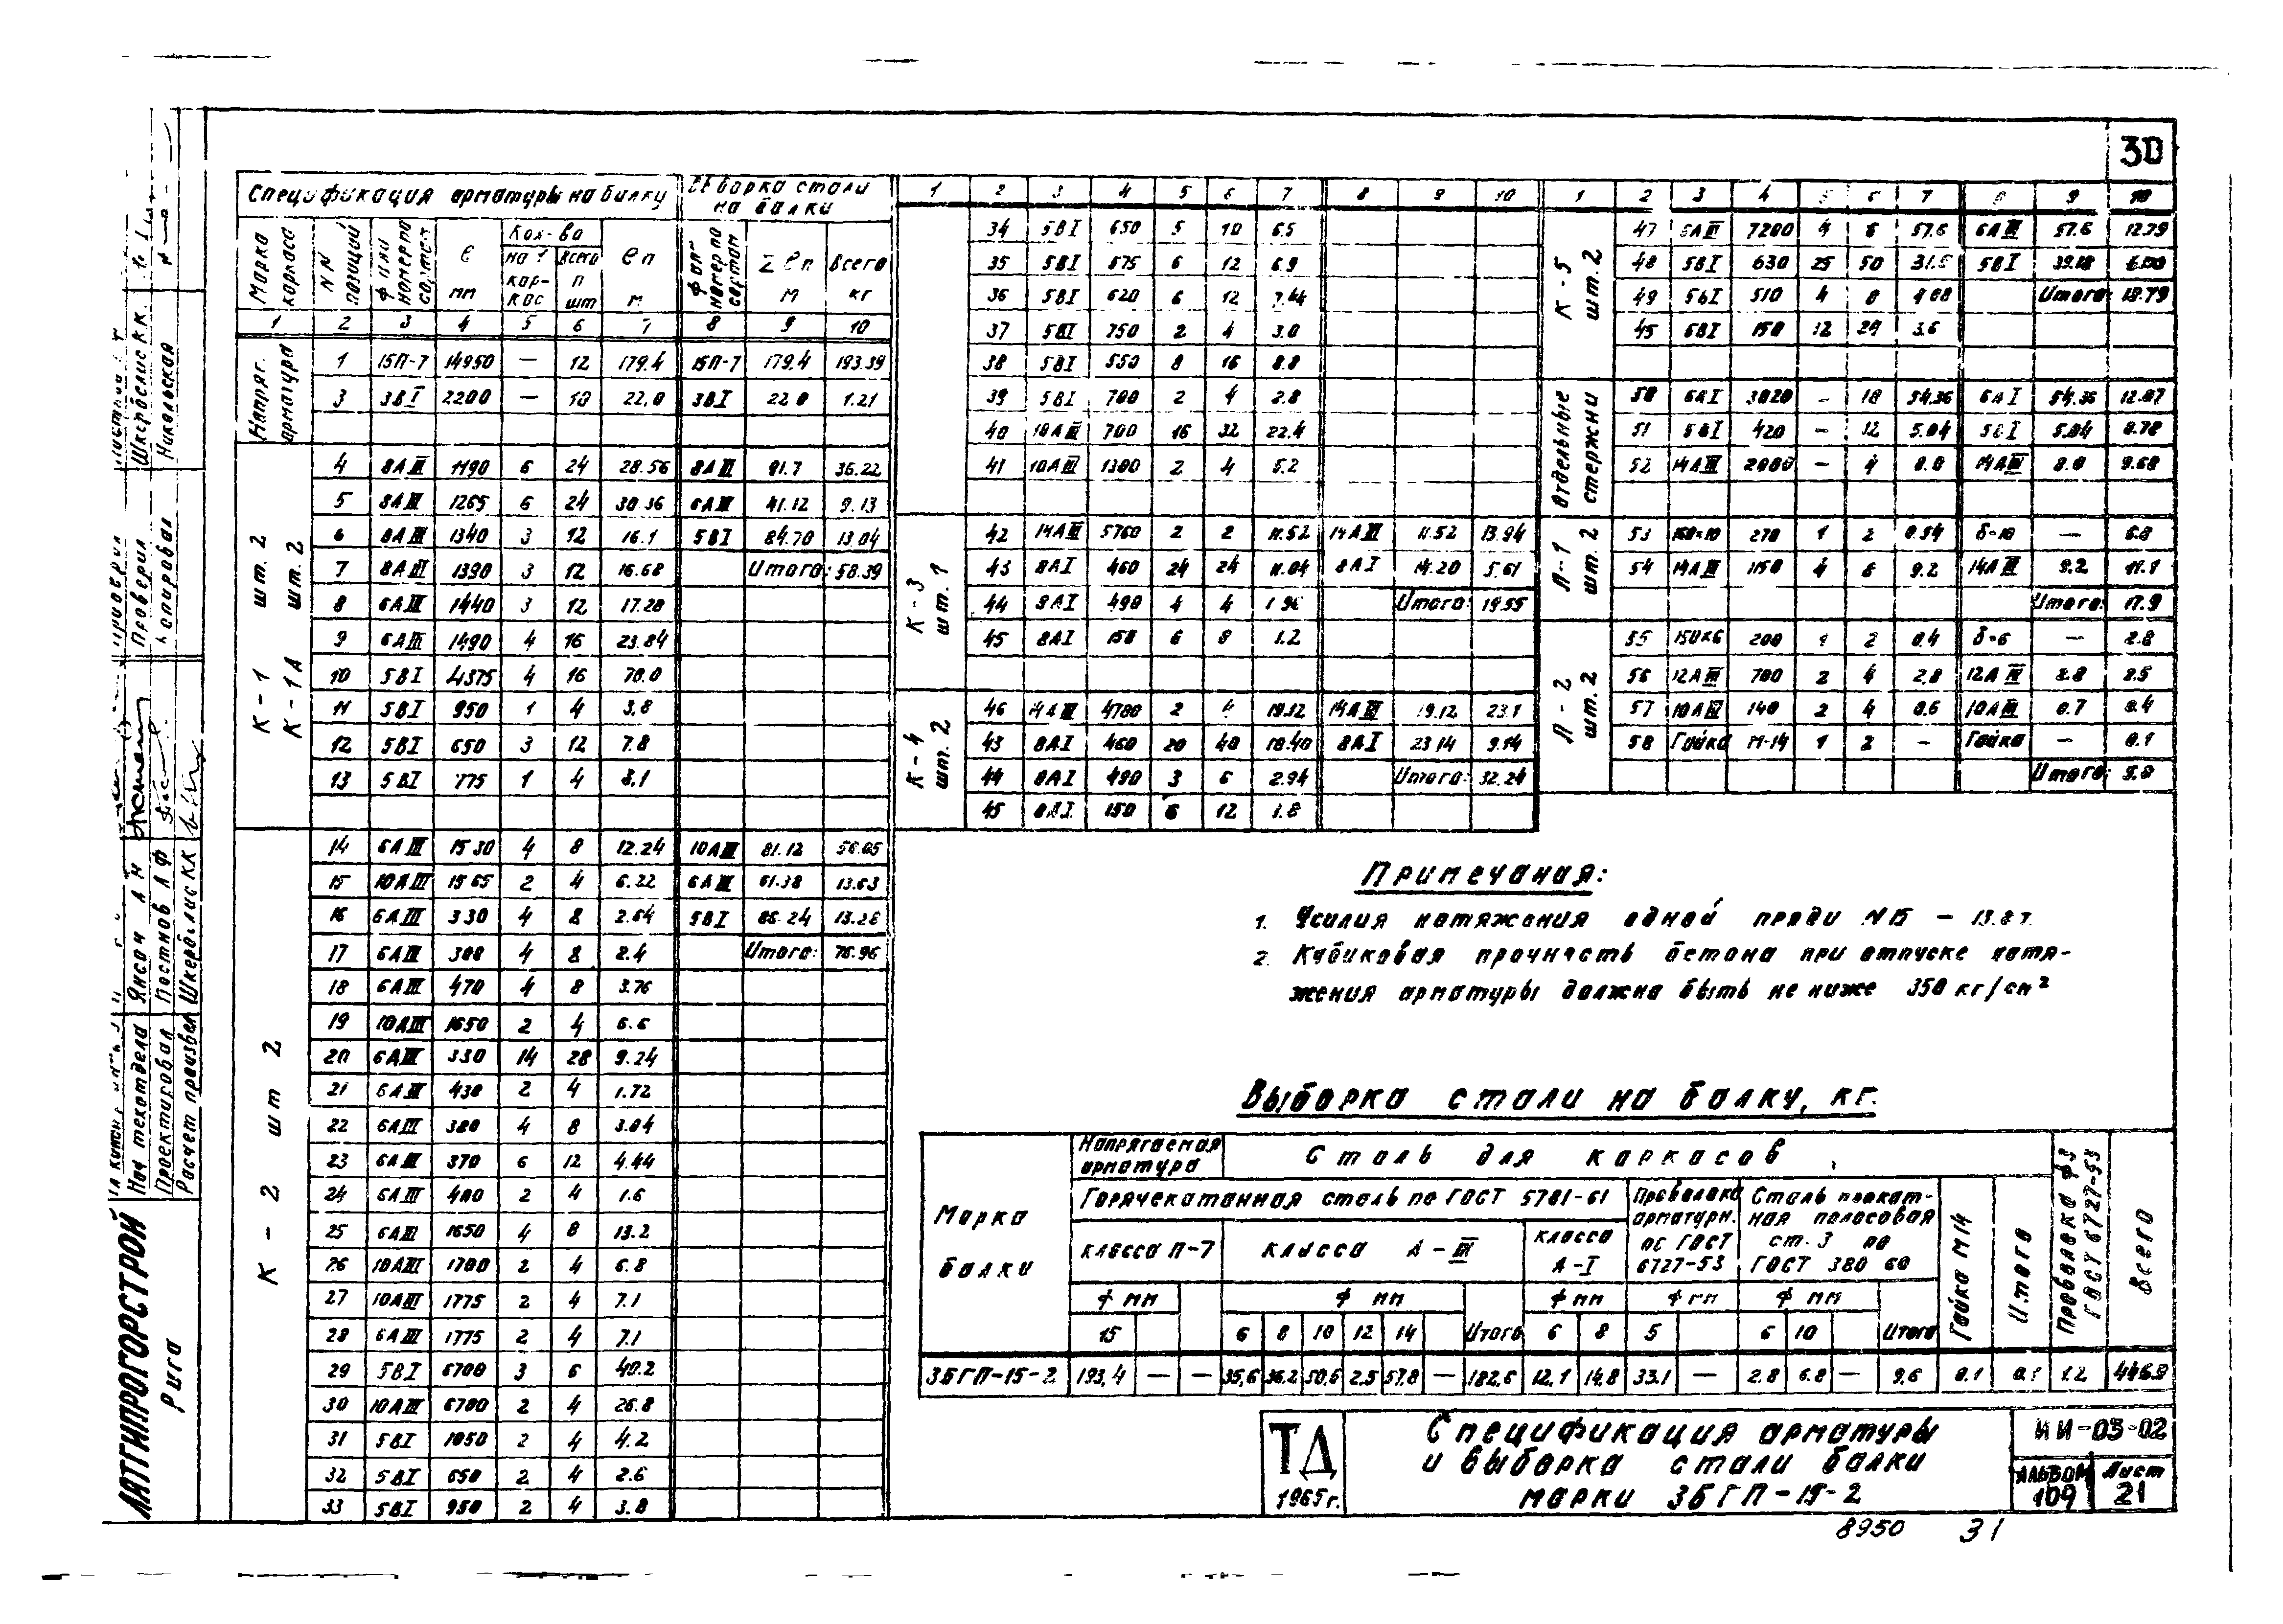 30
Спецификация арматуры на балку
Выборка стали на балки
Марка каркаса | NN позиций | ℓ мм | Кол-во | на 1 каркас | всего п шт | ℓп м | Σℓп м | Всего кг
1 2 3 4 5 6 7 8 9 10
Напряг. арматура
1 15П-7 14950 — 12 179.4 15П-7 179.4 193.39
3 3ВI 2200 — 10 22.0 3ВI 22.0 1.21
К-1 шт. 2
К-1А шт. 2
4 8АIII 1190 6 24 28.56 8АIII 91.7 36.22
5 8АIII 1265 6 24 30.36 6АIII 41.12 9.13
6 8АIII 1340 3 12 16.1 5ВI 84.70 13.04
7 8АIII 1390 3 12 16.68 Итого: 58.39
8 6АIII 1440 3 12 17.28
9 6АIII 1490 4 16 23.84
10 5ВI 4375 4 16 70.0
11 5ВI 950 1 4 3.8
12 5ВI 650 3 12 7.8
13 5ВI 775 1 4 3.1
К-2 шт 2
14 6АIII 1530 4 8 12.24 10АIII 81.12
15 10АIII 1565 2 4 6.22 6АIII 61.38 13.63
16 6АIII 330 4 8 2.64 5ВI 86.24 13.28
17 6АIII 300 4 8 2.4 Итого: 76.96
18 6АIII 470 4 8 3.76
19 10АIII 1650 2 4 6.6
20 6АIII 330 14 28 9.24
21 6АIII 430 2 4 1.72
22 6АIII 380 4 8 3.04
23 6АIII 370 6 12 4.44
24 6АIII 400 2 4 1.6
25 6АIII 1650 4 8 13.2
26 10АIII 1700 2 4 6.8
27 10АIII 1775 2 4 7.1
28 6АIII 1775 2 4 7.1
29 5ВI 6700 3 6 40.2
30 10АIII 6700 2 4 26.8
31 5ВI 1050 2 4 4.2
32 5ВI 650 2 4 2.6
33 5ВI 950 2 4 3.8
1 2 3 4 5 6 7 8 9 10
34 5ВI 650 5 10 6.5
35 5ВI 575 6 12 6.9
36 5ВI 620 6 12 7.44
37 5ВI 750 2 4 3.0
38 5ВI 550 8 16 8.8
39 5ВI 700 2 4 2.8
40 10АIII 700 16 32 22.4
41 10АIII 1300 2 4 5.2
К-3 шт. 1
42 14АIII 5760 2 2 11.52 14АIII 11.52 13.94
43 8АI 460 24 24 11.04 8АI 14.20 5.61
44 8АI 490 4 4 1.96 Итого: 19.55
45 8АI 150 6 8 1.2
К-4 шт. 2
46 14АIII 4780 2 4 19.12 14АIII 19.12 23.1
43 8АI 460 20 40 18.40 8АI 23.14 9.14
44 8АI 490 3 6 2.94 Итого: 32.24
45 8АI 150 6 12 1.8
1 2 3 4 5 6 7 8 9 10
К-5 шт. 2
47 6АIII 7200 4 8 57.6 6АIII 57.6 12.79
48 5ВI 630 25 50 31.5 5ВI 6.00
49 5ВI 510 4 8 4.08 Итого: 18.79
45 5ВI 150 12 24 3.6
Отдельные стержни
50 6АI 3020 — 18 54.36 6АI 54.36 12.07
51 5ВI 420 — 12 5.04 5ВI 5.04 0.78
52 14АIII 2000 — 4 8.0 14АIII 8.0 9.68
Л-1 шт. 2
53 160×10 270 1 2 0.54 δ-10 — 6.8
54 14АIII 1150 4 8 9.2 14АIII 9.2 11.1
Итого: 17.9
Л-2 шт. 2
55 150×6 200 1 2 0.4 δ-6 — 2.8
56 12АIII 700 2 4 2.8 12АIII 2.8 2.5
57 10АIII 140 2 4 0.6 10АIII 0.7 0.4
58 Гайка М-14 1 2 — Гайка — 0.1
Итого:
Примечания:
1. Усилия натяжения одной пряди П15 — 13.8 т.
2. Кубиковая прочность бетона при отпуске натя-
жения арматуры должна быть не ниже 350 кг/см²
Выборка стали на балку, кг.
Марка балки
Напрягаемая арматура
Сталь для каркасов
Горячекатанная сталь по ГОСТ 5781-61
Проволока арматурн. по ГОСТ 6727-53
Сталь прокатная полосовая ст. 3 по ГОСТ 380 60
Класса П-7 | класса А-III | класса А-I
Гайка М14 | Итого | Проволока ф3 ГОСТ 6727-53 | Всего
ф мм | ф мм | ф мм | ф мм | ф мм
15 | 6 8 10 12 14 Итого | 6 8 | 5 | 6 10 Итого
3БГП-15-2 193,4 — — 35,6 36.2 50,6 2.5 57.8 — 182.6 12.1 14.8 33.1 — 2.8 6.8 — 9.6 0.1 0.1 1.2
ТД
1965г.
Спецификация арматуры
и выборка стали балки
марки 3БГП-15-2
ИИ-03-02
Альбом 109
Лист 21
8950 31
ЛАТГИПРОГОРСТРОЙ
Рига
Нач техотдела Янсон А Н
Проектировал Постнов А Ф
Расчет произвел Шкерделис КК
Проверил Шкерделис К.К.
Копировал Никольская